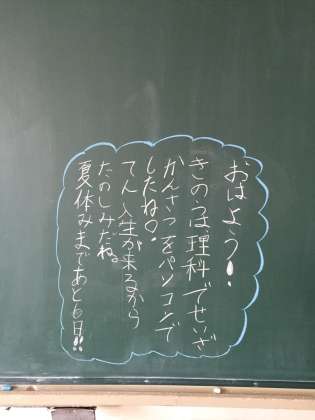 おはよう!
きのうは理科でせいざ
かんさつをパソコンで
したね♡。
てん入生が来るから
たのしみだね。
夏休みまであと6日!!